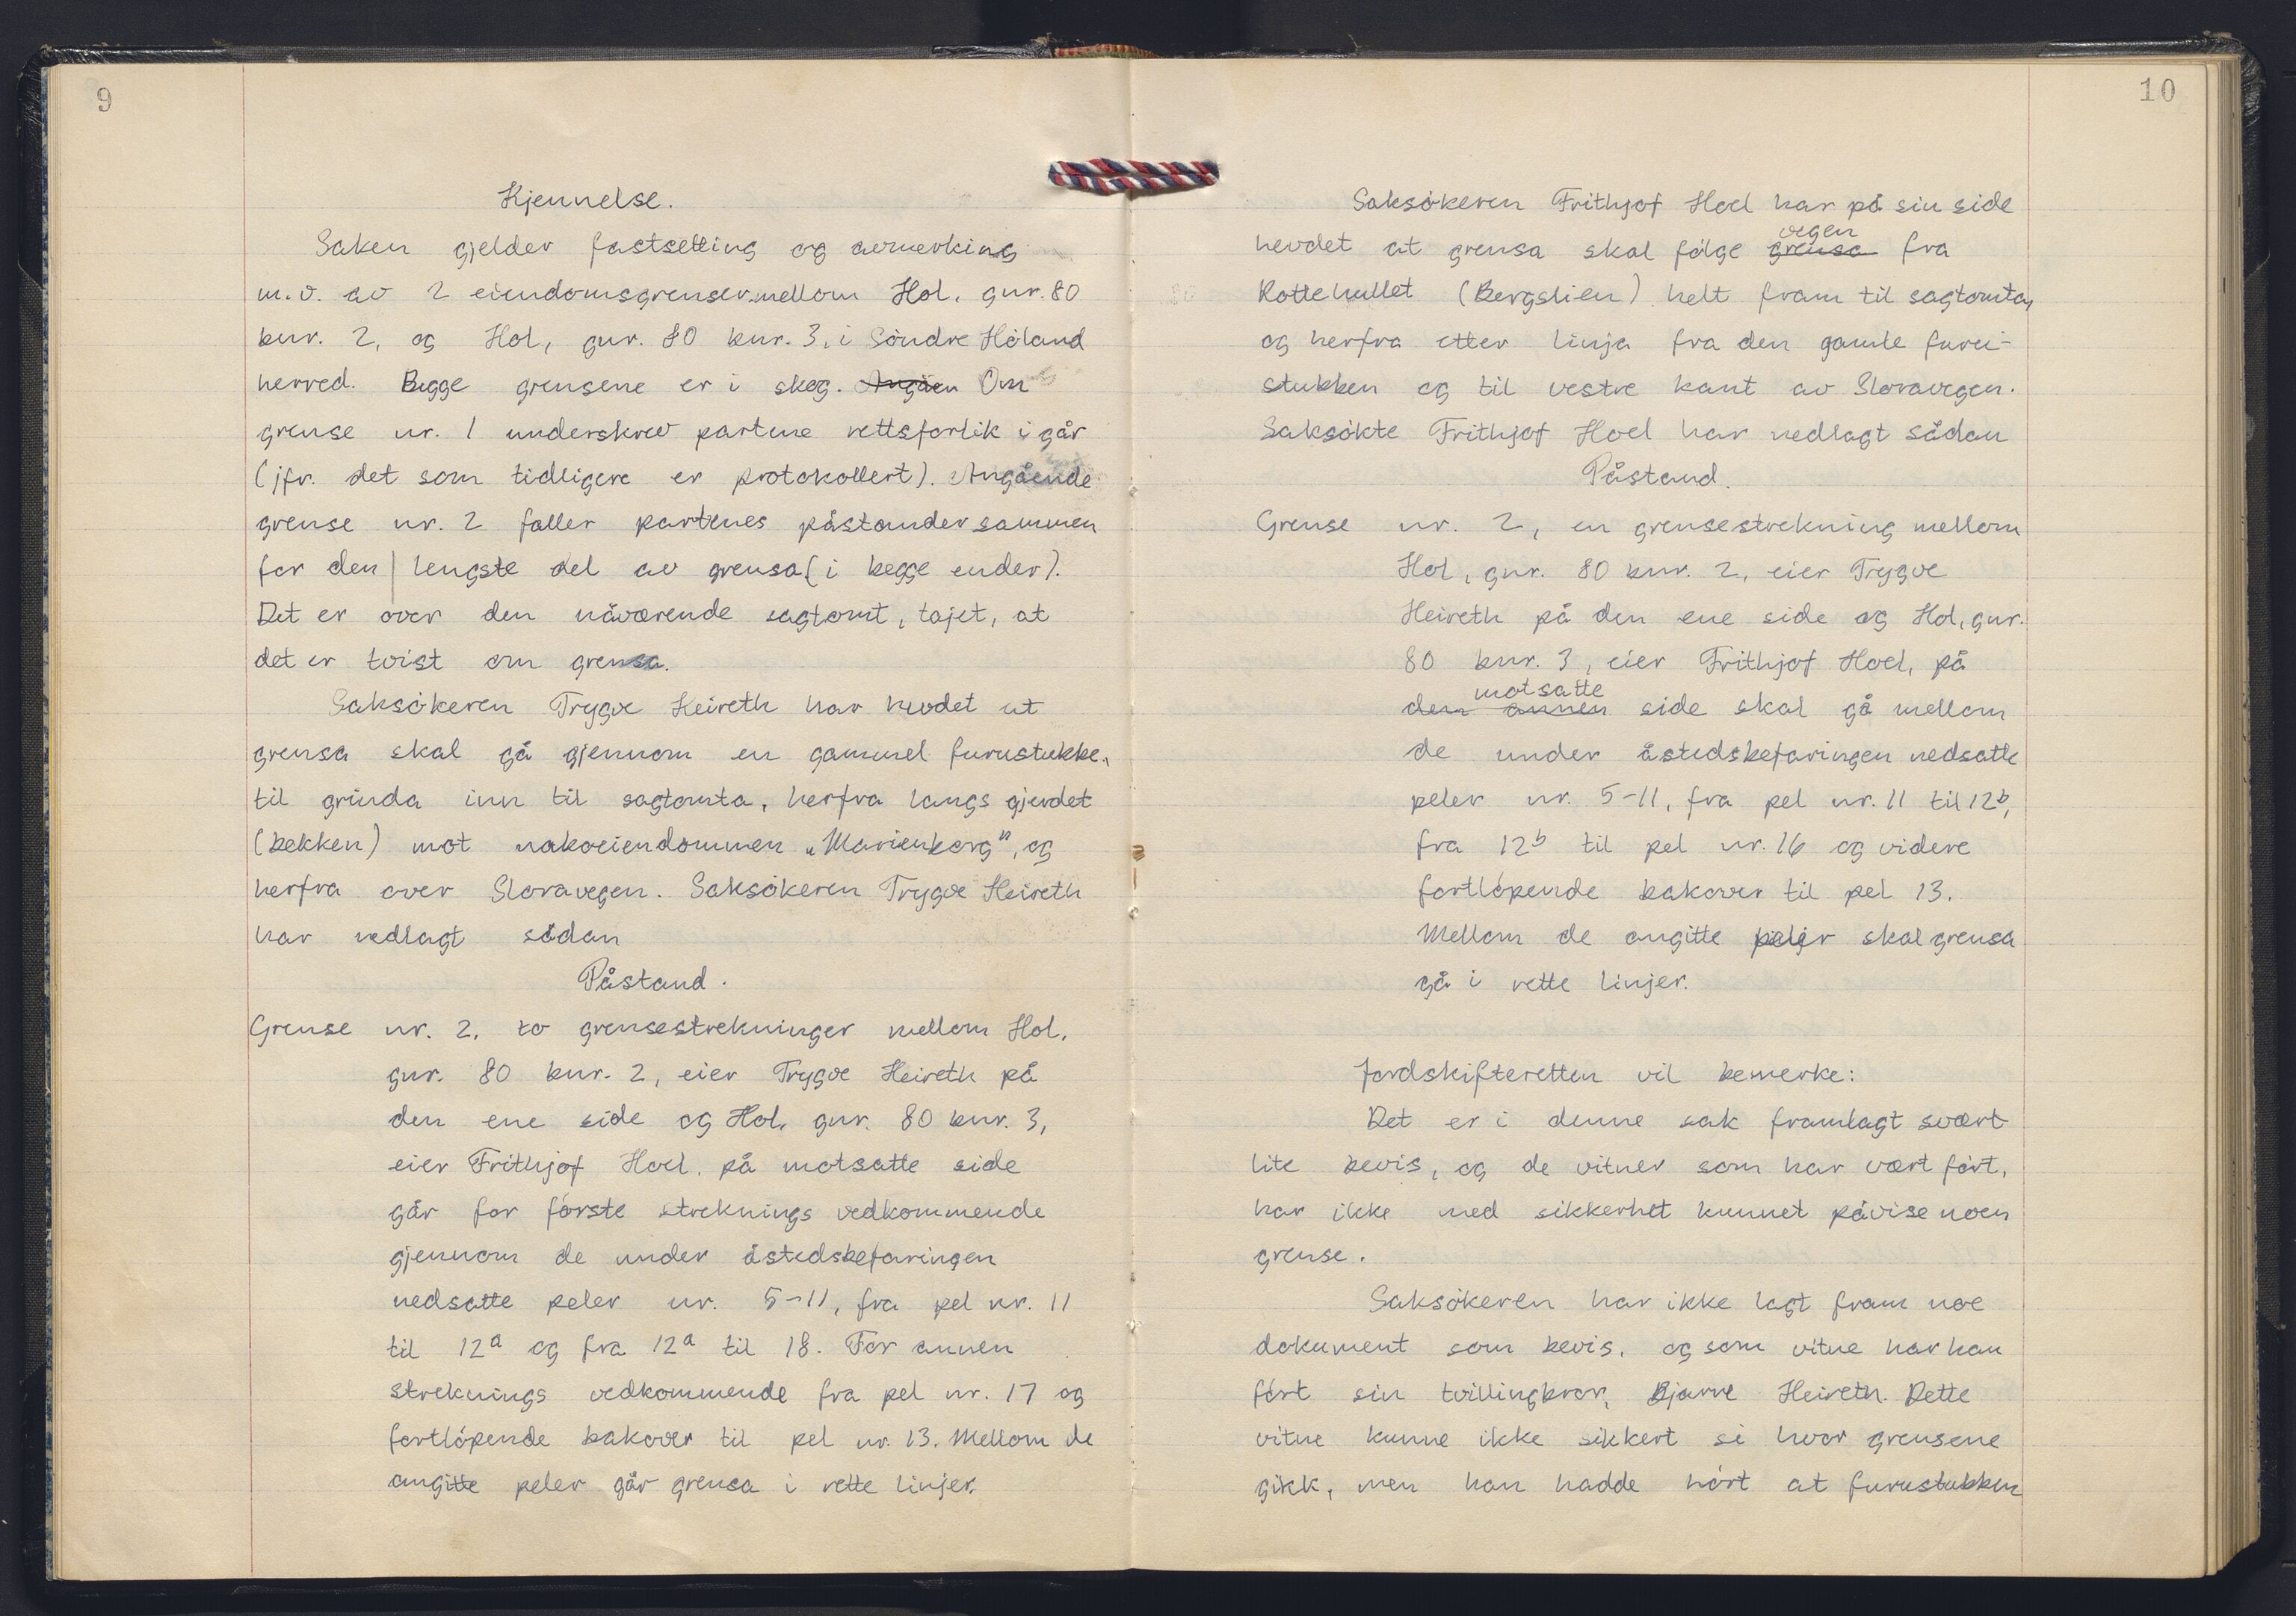 9
Kjennelse.
Saken gjelder fastsetting og avmerking
m.v. av 2 eiendomsgrenser mellom Hol, gnr. 80
bnr. 2, og Hol, gnr. 80 bnr. 3, i Söndre Höland
herred. Begge grensene er i skog. Angåen Om
grense nr. 1 underskrev partene rettsforlik i går
(jfr. det som tidligere er protokollert). Angående
grense nr. 2 faller partenes påstander sammen
for den lengste del av grensa (i begge ender).
Det er over den nåværende sagtomt, tajet, at
det er tvist om grensa.
Saksökeren Trygve Heireth har hevdet at
grensa skal gå gjennom en gammel furustubbe,
til grinda inn til sagtomta, herfra langs gjerdet
(bekken) mot naboeiendommen „Marienborg", og
herfra over Sloravegen. Saksökeren Trygve Heireth
har nedlagt sådan
Påstand.
Grense nr. 2, to grensestrekninger mellom Hol,
gnr. 80 bnr. 2, eier Trygve Heireth på
den ene side og Hol, gnr. 80 bnr. 3,
eier Frithjof Hoel, på motsatte side
går for förste streknings vedkommende
gjennom de under åstedsbefaringen
nedsatte peler nr. 5-11, fra pel nr. 11
til 12a og fra 12a til 18. For annen
streknings vedkommende fra pel nr. 17 og
fortlöpende bakover til pel nr. 13. Mellom de
angitte peler går grensa i rette linjer.
10
Saksökeren Frithjof Hoel har på sin side
hevdet at grensa skal fölge grensa vegen fra
Rottehullet (Bergslien) helt fram til sagtomta,
og herfra etter linja fra den gamle furu-
stubben og til vestre kant av Sloravegen.
Saksökte Frithjof Hoel har nedlagt sådan
Påstand.
Grense nr. 2, en grensestrekning mellom
Hol, gnr. 80 bnr. 2, eier Trygve
Heireth på den ene side og Hol, gnr.
80 bnr. 3, eier Frithjof Hoel, på
motsatte
den annen side skal gå mellom
de under åstedsbefaringen nedsatte
peler nr. 5-11, fra pel nr. 11 til 12b,
fra 12b til pel nr. 16 og videre
fortlöpende bakover til pel 13.
Mellom de angitte peler skal grensa
gå i rette linjer.
Jordskifteretten vil bemerke:
Det er i denne sak framlagt svært
lite bevis, og de vitner som har vært fört,
har ikke med sikkerhet kunnet påvise noen
grense.
Saksökeren har ikke lagt fram noe
dokument som bevis, og som vitne har han
fört sin tvillingbror, Bjarne Heireth. Dette
vitne kunne ikke sikkert si hvor grensene
gikk, men han hadde hört at furustubben